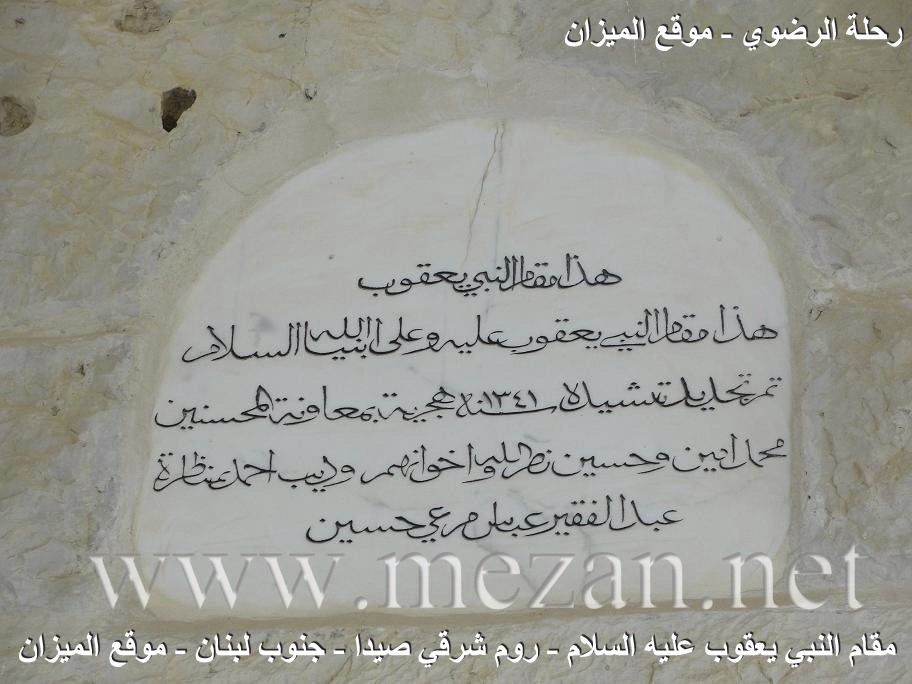 رحلة الرضوي - موقع الميزان
هذا مقام النبي يعقوب
هذا مقام النبي يعقوب عليه وعلى انبياء الله السلام
تم تجديد تشييده سنة ١٣٤١ هجرية بمعاونة المحسنين
محمد امين وحسين نصرالله واخوانهم وديب احمد بمناظرة
عبد الفقير عباس مرعي حسين
www.mezan.net
مقام النبي يعقوب عليه السلام - روم شرقي صيدا - جنوب لبنان - موقع الميزان